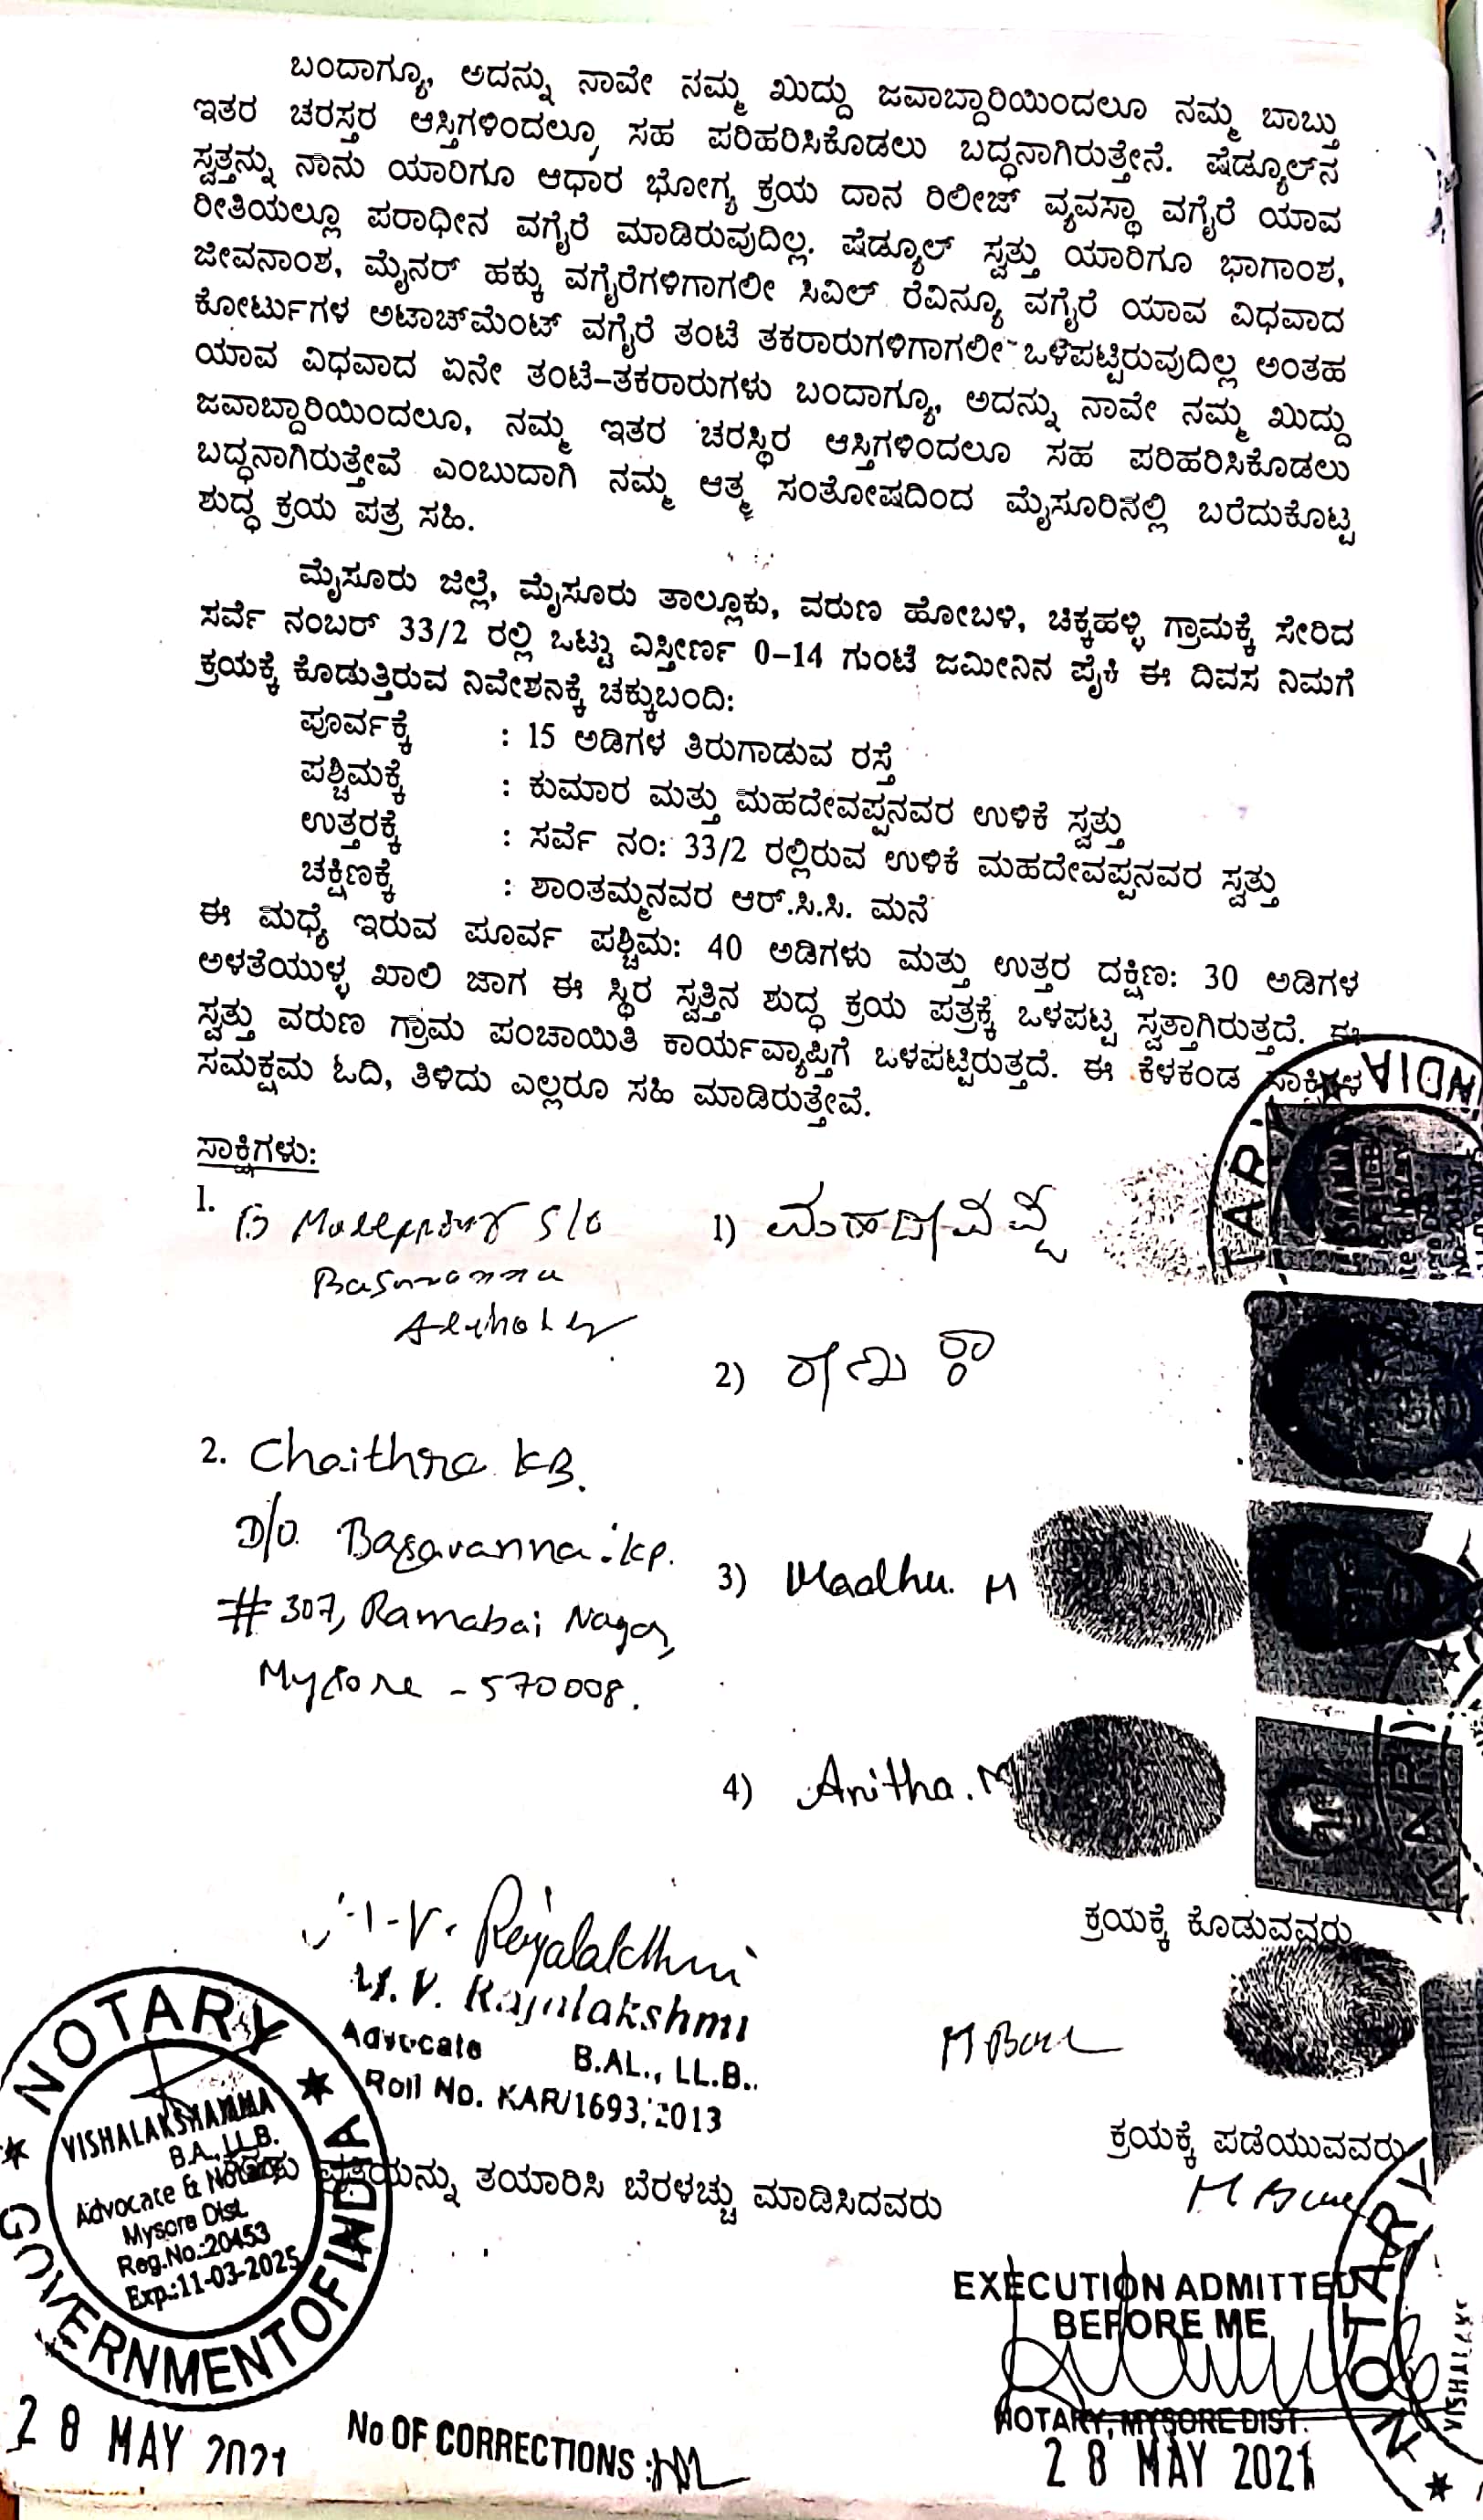 ಬಂದಾಗ್ಯೂ, ಅದನ್ನು ನಾವೇ ನಮ್ಮ ಖುದ್ದು ಜವಾಬ್ದಾರಿಯಿಂದಲೂ ನಮ್ಮ ಬಾಬ್ತು
ಇತರ ಚರಸ್ತರ ಆಸ್ತಿಗಳಿಂದಲ್ಲೂ, ಸಹ ಪರಿಹರಿಸಿಕೊಡಲು ಬದ್ಧನಾಗಿರುತ್ತೇನೆ. ಷೆಡ್ಯೂಲ್‌ನ
ಸ್ವತ್ತನ್ನು ನಾನು ಯಾರಿಗೂ ಆಧಾರ ಭೋಗ್ಯ ಕ್ರಯ ದಾನ ರಿಲೀಜ್ ವ್ಯವಸ್ಥಾ ವಗೈರೆ ಯಾವ
ರೀತಿಯಲ್ಲೂ ಪರಾಧೀನ ವಗೈರೆ ಮಾಡಿರುವುದಿಲ್ಲ. ಷೆಡ್ಯೂಲ್ ಸ್ವತ್ತು ಯಾರಿಗೂ ಭಾಗಾಂಶ,
ಜೀವನಾಂಶ, ಮೈನರ್ ಹಕ್ಕು ವಗೈರೆಗಳಿಗಾಗಲೀ ಸಿವಿಲ್ ರೆವಿನ್ಯೂ ವಗೈರೆ ಯಾವ ವಿಧವಾದ
ಕೋರ್ಟುಗಳ ಅಟಾಚ್‌ಮೆಂಟ್ ವಗೈರೆ ತಂಟೆ ತಕರಾರುಗಳಿಗಾಗಲೀ ಒಳಪಟ್ಟಿರುವುದಿಲ್ಲ ಅಂತಹ
ಯಾವ ವಿಧವಾದ ಏನೇ ತಂಟೆ-ತಕರಾರುಗಳು ಬಂದಾಗ್ಯೂ, ಅದನ್ನು ನಾವೇ ನಮ್ಮ ಖುದ್ದು
ಜವಾಬ್ದಾರಿಯಿಂದಲೂ, ನಮ್ಮ ಇತರ ಚರಸ್ಥಿರ ಆಸ್ತಿಗಳಿಂದಲೂ ಸಹ ಪರಿಹರಿಸಿಕೊಡಲು
ಬದ್ಧನಾಗಿರುತ್ತೇವೆ ಎಂಬುದಾಗಿ ನಮ್ಮ ಆತ್ಮ ಸಂತೋಷದಿಂದ ಮೈಸೂರಿನಲ್ಲಿ ಬರೆದುಕೊಟ್ಟ
ಶುದ್ಧ ಕ್ರಯ ಪತ್ರ ಸಹಿ.
ಮೈಸೂರು ಜಿಲ್ಲೆ, ಮೈಸೂರು ತಾಲ್ಲೂಕು, ವರುಣ ಹೋಬಳಿ, ಚಿಕ್ಕಹಳ್ಳಿ ಗ್ರಾಮಕ್ಕೆ ಸೇರಿದ
ಸರ್ವೆ ನಂಬರ್ 33/2 ರಲ್ಲಿ ಒಟ್ಟು ವಿಸ್ತೀರ್ಣ 0-14 ಗುಂಟೆ ಜಮೀನಿನ ಪೈಕಿ ಈ ದಿವಸ ನಿಮಗೆ
ಕ್ರಯಕ್ಕೆ ಕೊಡುತ್ತಿರುವ ನಿವೇಶನಕ್ಕೆ ಚಕ್ಕುಬಂದಿ:
ಪೂರ್ವಕ್ಕೆ : 15 ಅಡಿಗಳ ತಿರುಗಾಡುವ ರಸ್ತೆ
ಪಶ್ಚಿಮಕ್ಕೆ : ಕುಮಾರ ಮತ್ತು ಮಹದೇವಪ್ಪನವರ ಉಳಿಕೆ ಸ್ವತ್ತು
ಉತ್ತರಕ್ಕೆ : ಸರ್ವೆ ನಂ: 33/2 ರಲ್ಲಿರುವ ಉಳಿಕೆ ಮಹದೇವಪ್ಪನವರ ಸ್ವತ್ತು
ಚಕ್ಷಿಣಕ್ಕೆ : ಶಾಂತಮ್ಮನವರ ಆರ್.ಸಿ.ಸಿ. ಮನೆ
ಈ ಮಧ್ಯೆ ಇರುವ ಪೂರ್ವ ಪಶ್ಚಿಮ: 40 ಅಡಿಗಳು ಮತ್ತು ಉತ್ತರ ದಕ್ಷಿಣ: 30 ಅಡಿಗಳ
ಅಳತೆಯುಳ್ಳ ಖಾಲಿ ಜಾಗ ಈ ಸ್ಥಿರ ಸ್ವತ್ತಿನ ಶುದ್ಧ ಕ್ರಯ ಪತ್ರಕ್ಕೆ ಒಳಪಟ್ಟ ಸ್ವತ್ತಾಗಿರುತ್ತದೆ. ಈ
ಸ್ವತ್ತು ವರುಣ ಗ್ರಾಮ ಪಂಚಾಯಿತಿ ಕಾರ್ಯವ್ಯಾಪ್ತಿಗೆ ಒಳಪಟ್ಟಿರುತ್ತದೆ. ಈ ಕೆಳಕಂಡ ಸಾಕ್ಷಿಗಳ
ಸಮಕ್ಷಮ ಓದಿ, ತಿಳಿದು ಎಲ್ಲರೂ ಸಹಿ ಮಾಡಿರುತ್ತೇವೆ.
ಸಾಕ್ಷಿಗಳು:
1. S/o
Basavanna
1) ಮಹದೇವಪ್ಪ
2)
2. Chaithra KB.
D/o Basavanna. kp.
# 307, Ramabai Nagar,
Mysore - 570008.
3) Madhu. M
4) Anitha. M
ಕ್ರಯಕ್ಕೆ ಕೊಡುವವರು
V. Rajalakshmi
V. Rajalakshmi
Advocate B.AL., LL.B..
Roll No. KAR/1693/2013
ಕ್ರಯಕ್ಕೆ ಪಡೆಯುವವರು
ಪ್ರತಿಯನ್ನು ತಯಾರಿಸಿ ಬೆರಳಚ್ಚು ಮಾಡಿಸಿದವರು
NOTARY
GOVERNMENT OF INDIA
VISHALAKSHAMMA
B.A., LL.B.
Advocate & Notary
Mysore Dist.
Reg.No.:20453
Exp.:11-03-2025
28 MAY 2021
No OF CORRECTIONS :
EXECUTION ADMITTED
BEFORE ME
NOTARY, MYSORE DIST.
28 MAY 2021